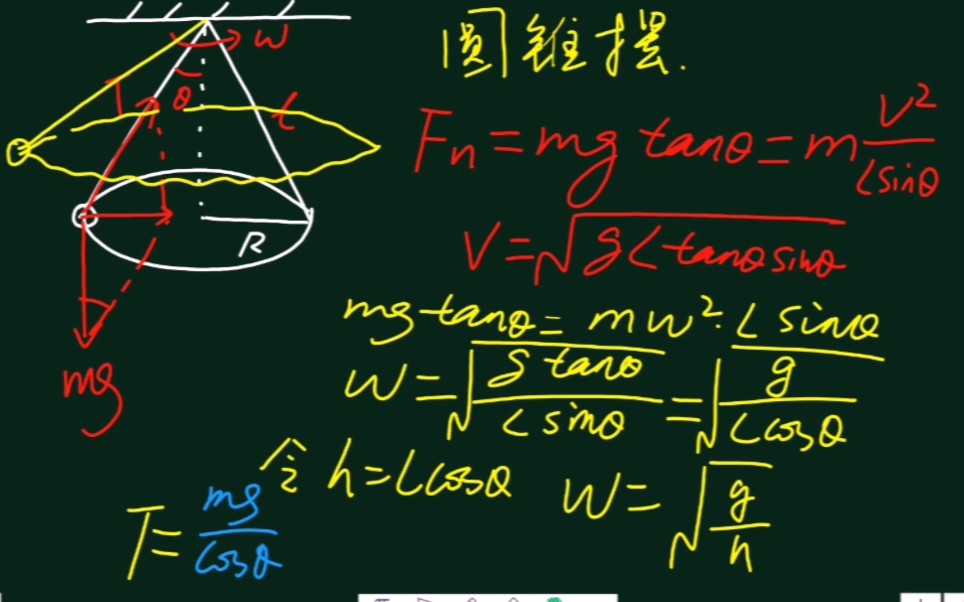 圆锥摆.
ω
θ
L
R
mg
Fn = mg tanθ = m V²/Lsinθ
V = √gL tanθ sinθ
mg tanθ = mω²·L sinθ
ω = √g tanθ/L sinθ = √g/Lcosθ
令 h = Lcosθ ω = √g/h
T = mg/cosθ